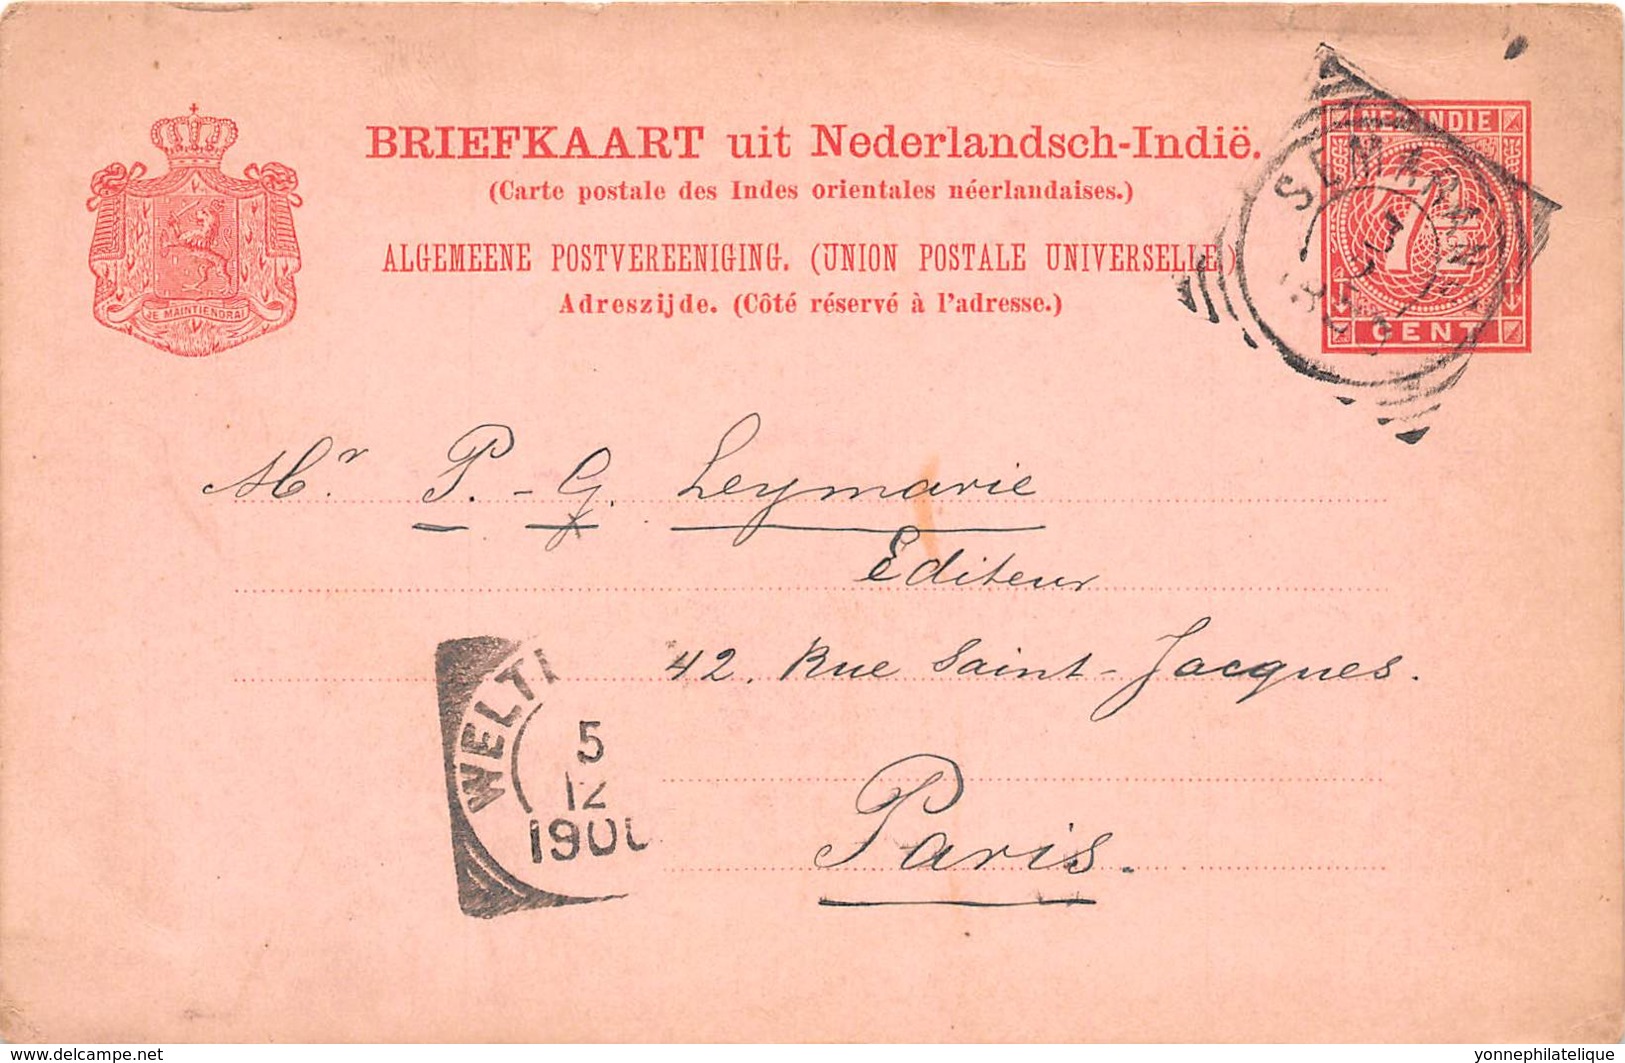 BRIEFKAART uit Nederlandsch-Indië.
(Carte postale des Indes orientales néerlandaises.)
ALGEMEENE POSTVEREENIGING. (UNION POSTALE UNIVERSELLE)
Adreszijde. (Côté réservé à l'adresse.)
JE MAINTIENDRAI
NED. INDIE
7½
CENT
SEMARANG
Mr P.-G. Leymarie
Editeur
42, Rue Saint-Jacques.
Paris.
WELT
5
12
1900
www.delcampe.net
yonnephilatelique